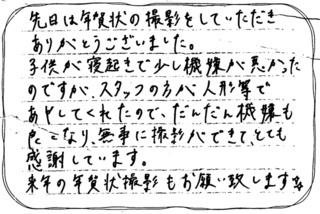 先日は年賀状の撮影をしていただき
ありがとうございました。
子供が寝起きで少し機嫌が悪かった
のですが、スタッフの方が人形等で
あやしてくれたので、だんだん機嫌も
良くなり、無事に撮影ができて、とても
感謝しています。
来年の年賀状撮影もお願い致します